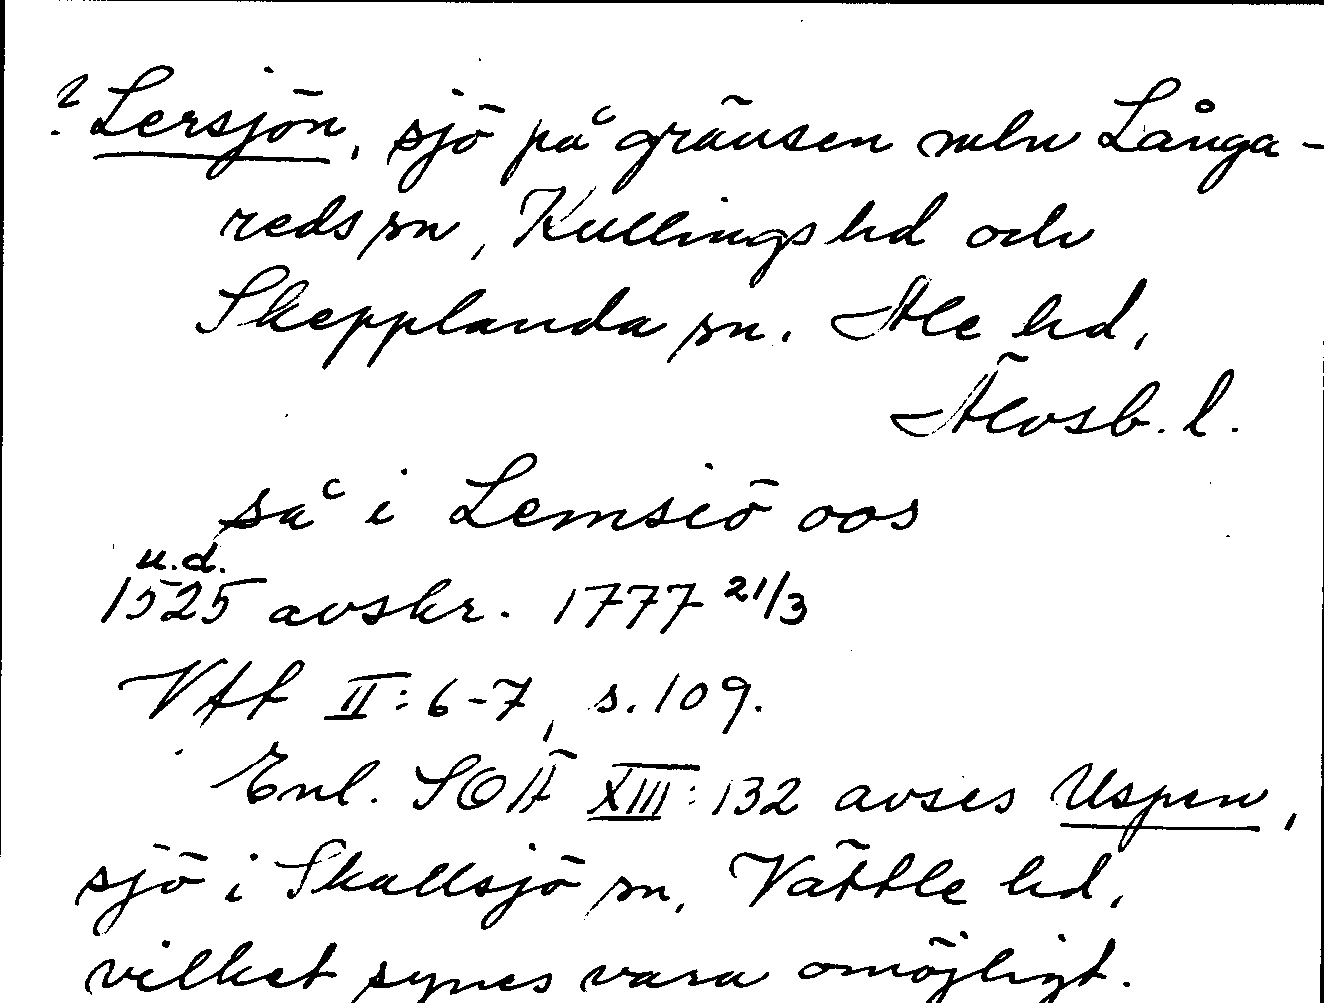 ? Lersjön, sjö på gränsen mln Långa-
reds sn, Kullings hd och
Skepplanda sn. Ale hd,
Älvsb. l.
så i Lemsiö oos
u.d.
1525 avskr. 1777 21/3
Vff II: 6-7, s. 109.
Enl. SOÄ XIII: 132 avses Uspen,
sjö i Skallsjö sn, Vättle hd,
vilket synes vara omöjligt.